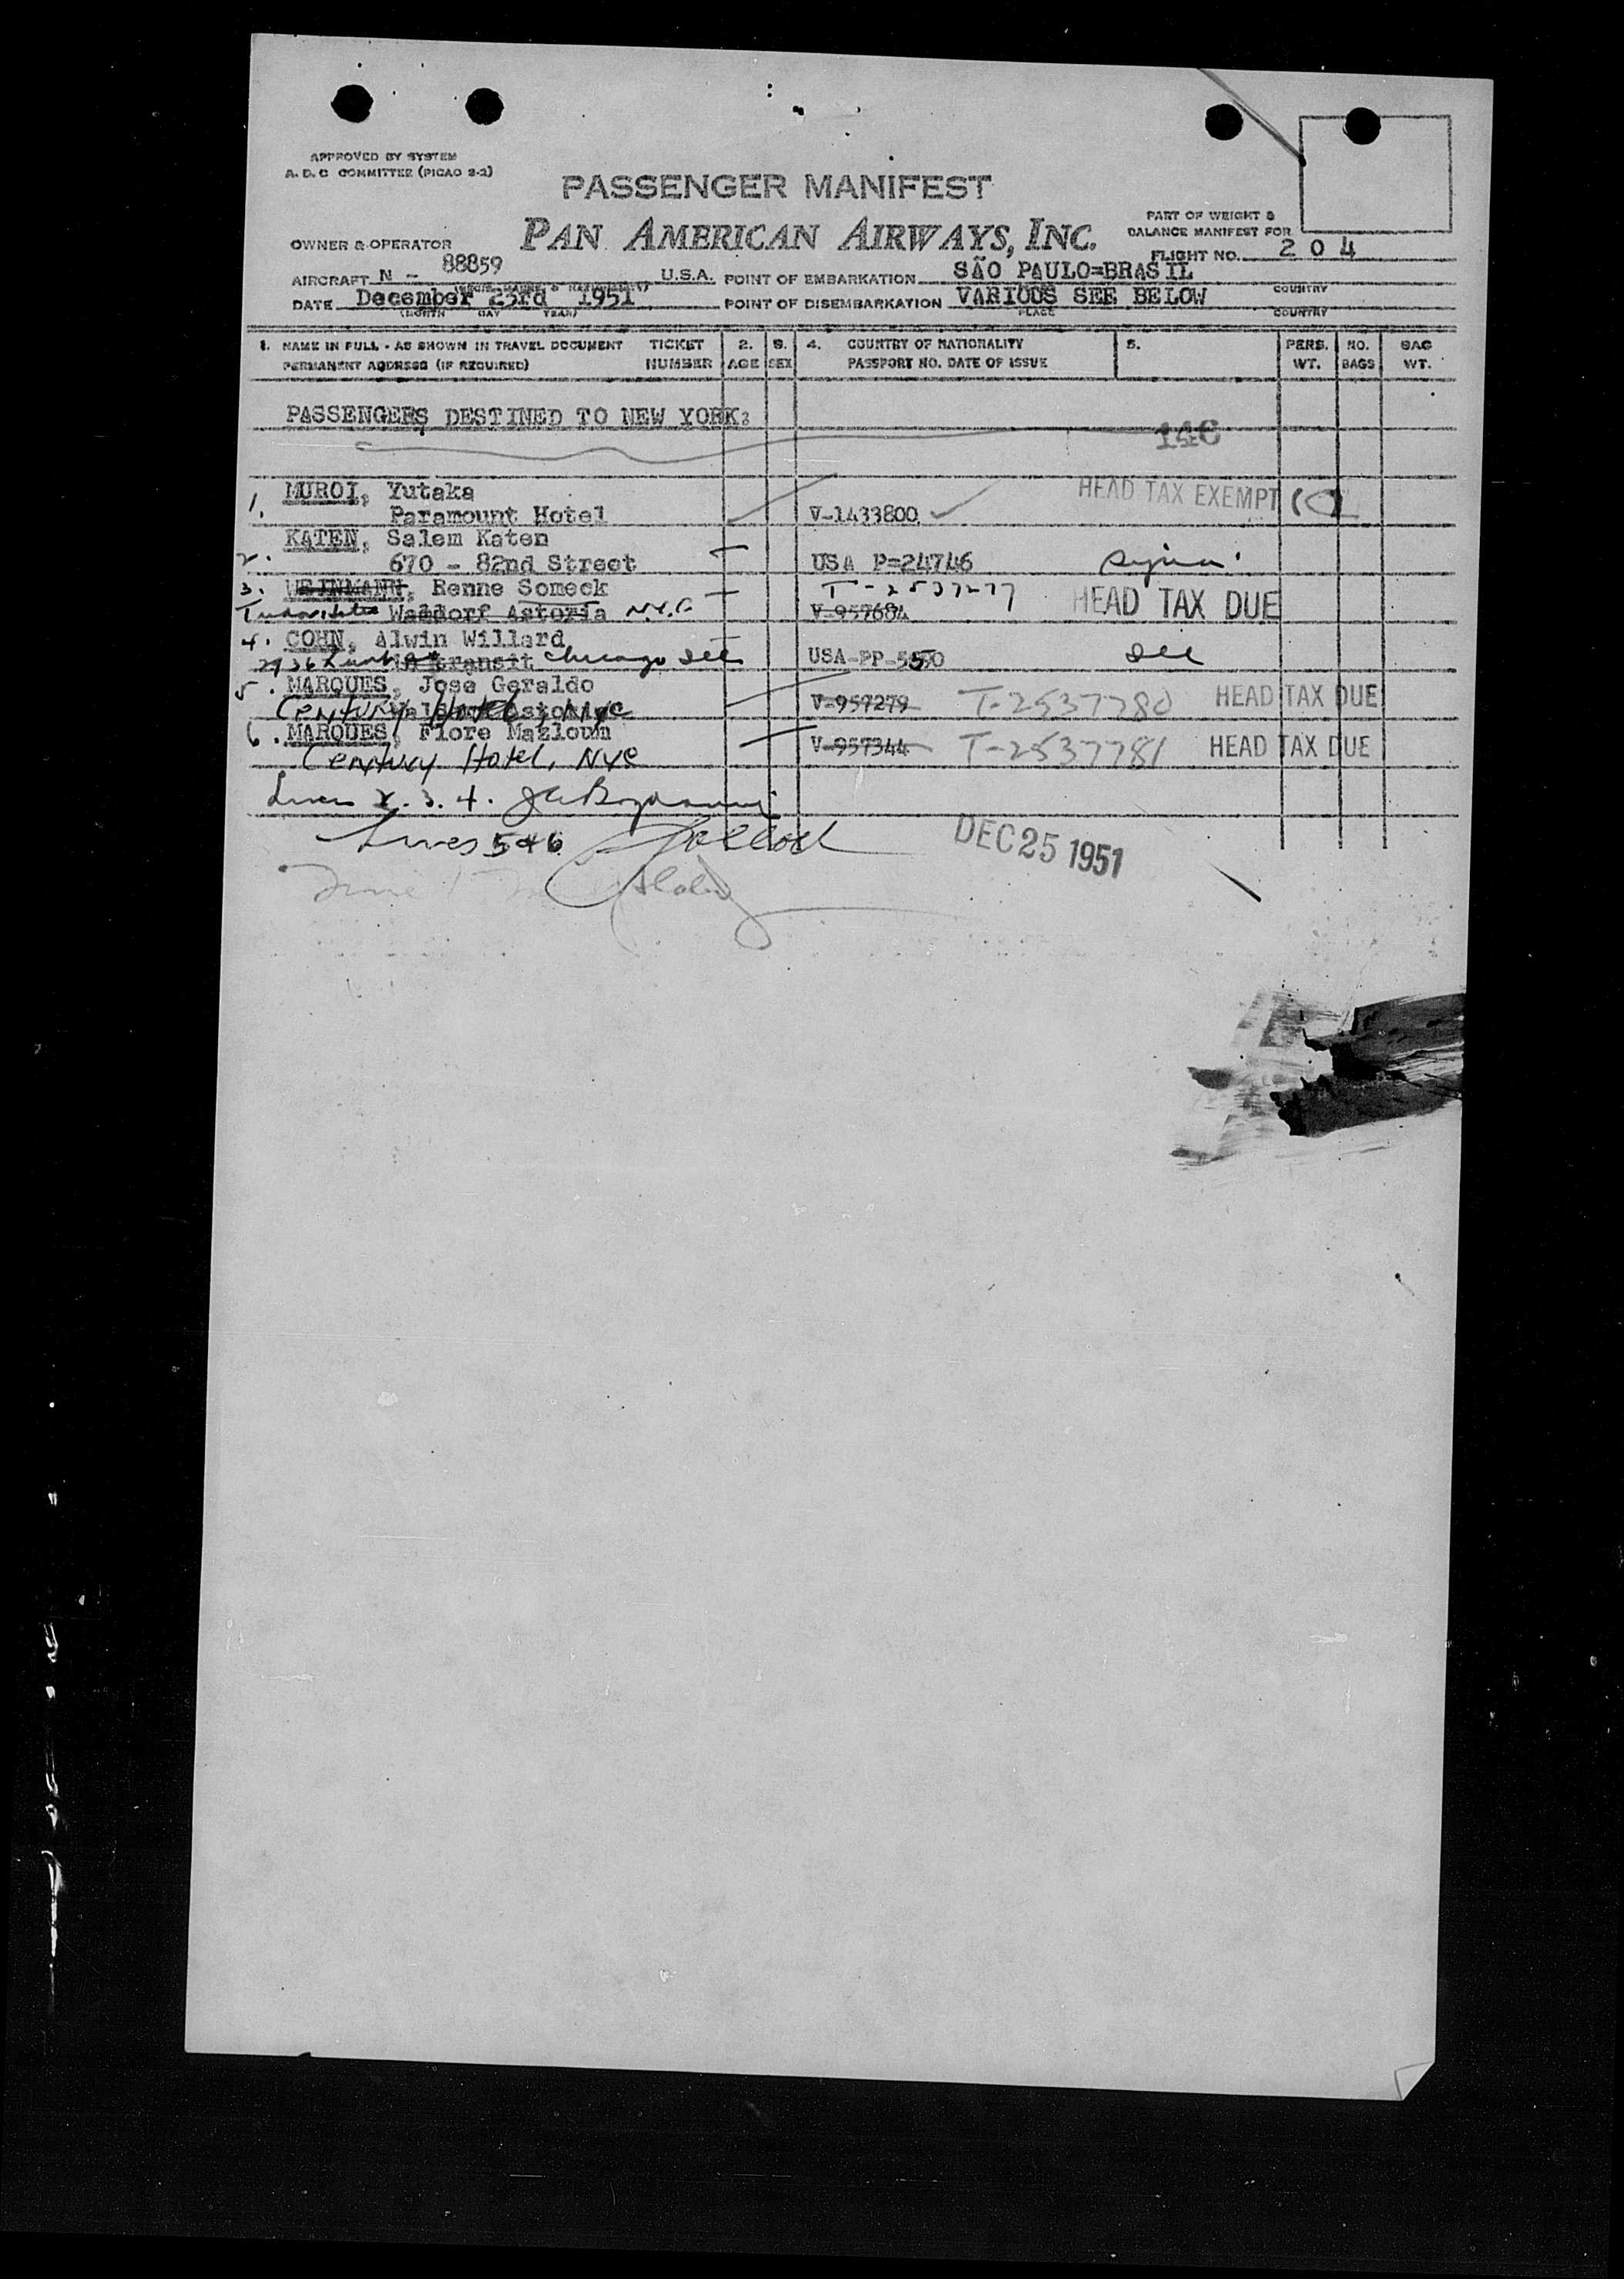 APPROVED BY SYSTEM
A. D. C COMMITTEE (PICAO 2-2)
PASSENGER MANIFEST
PAN AMERICAN AIRWAYS, INC.
PART OF WEIGHT &
BALANCE MANIFEST FOR
FLIGHT NO. 204
OWNER & OPERATOR
AIRCRAFT N - 88859 U.S.A. POINT OF EMBARKATION SÃO PAULO=BRASIL
COUNTRY
DATE December 23rd 1951 POINT OF DISEMBARKATION VARIOUS SEE BELOW
(MONTH DAY YEAR) PLACE COUNTRY
1. NAME IN FULL - AS SHOWN IN TRAVEL DOCUMENT TICKET 2. 3. 4. COUNTRY OF NATIONALITY 5. PERS. NO. BAG
PERMANENT ADDRESS (IF REQUIRED) NUMBER AGE SEX PASSPORT NO. DATE OF ISSUE WT. BAGS WT.
PASSENGERS DESTINED TO NEW YORK:
1. MUROI, Yutaka HEAD TAX EXEMPT
Paramount Hotel V-1433800
2. KATEN, Salem Katen
670 - 82nd Street USA P=24746
3. WEINMANN, Renne Someck T-2537277 HEAD TAX DUE
Waldorf Astoria N.Y.C. V-957684
4. COHN, Alwin Willard
2936 In transit Chicago Ill USA-PP-5550 Ill
5. MARQUES, Jose Geraldo
Century Hotel, NYC V-957279 T-2537780 HEAD TAX DUE
6. MARQUES, Flore Mazloum
Century Hotel, NYC V-957344 T-2537781 HEAD TAX DUE
Lines 2. 3. 4.
Lines 5+6
DEC 25 1951